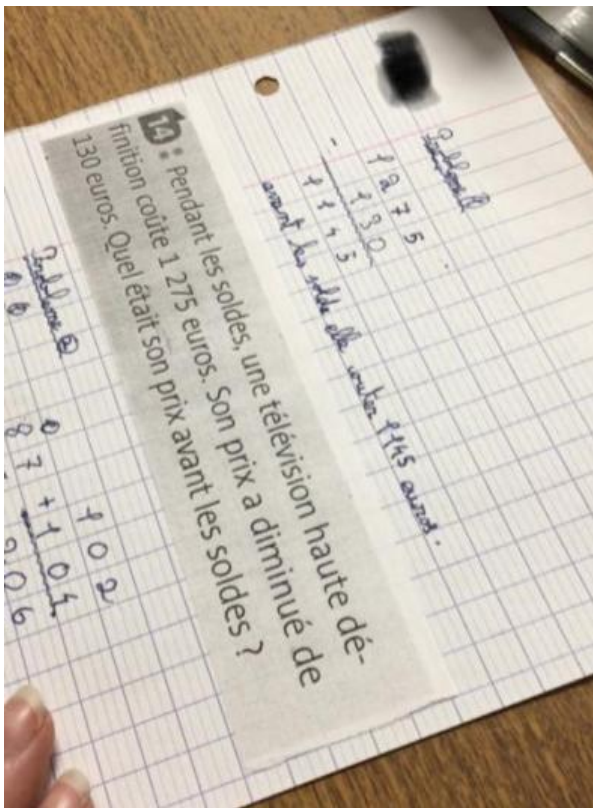 Problème
1275
- 130
1145
avant les solde elle couter 1145 euros.
14 : Pendant les soldes, une télévision haute dé-
finition coûte 1 275 euros. Son prix a diminué de
130 euros. Quel était son prix avant les soldes ?
Problème
102
87 + 104
206